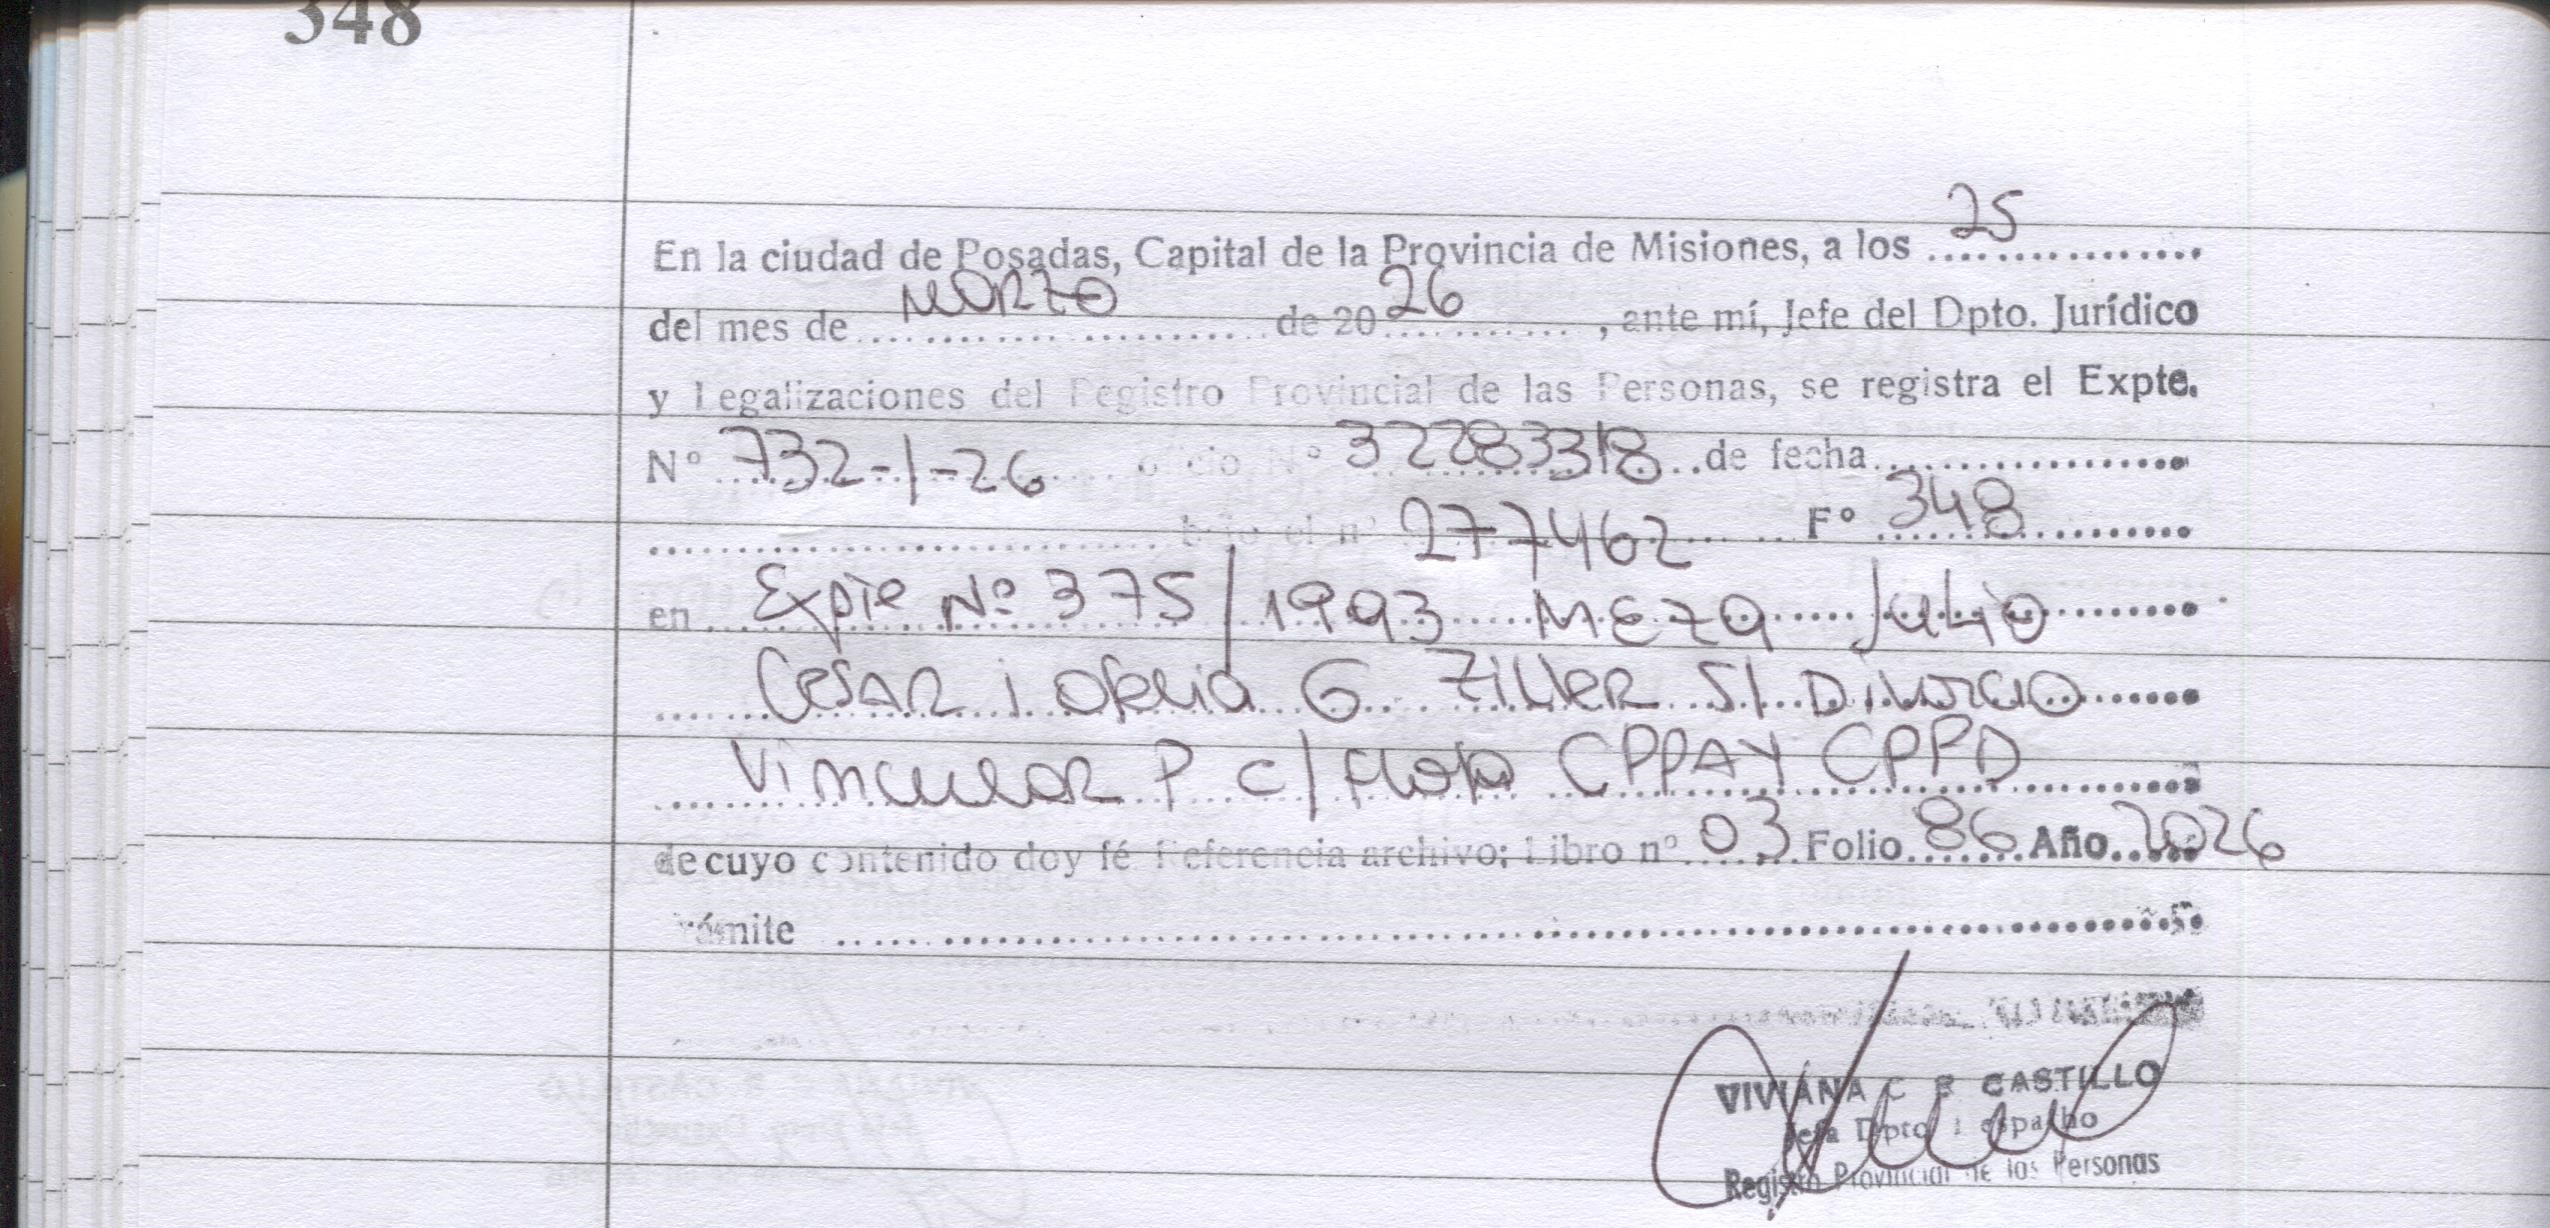 348
En la ciudad de Posadas, Capital de la Provincia de Misiones, a los 25
del mes de MARZO de 2026, ante mí, Jefe del Dpto. Jurídico
y Legalizaciones del Registro Provincial de las Personas, se registra el Expte.
Nº 732-1-26 oficio Nº 32283318 de fecha
bajo el nº 277462 Fº 348
en Expte Nº 375/1993 MEZA Julio
CesAR i Ofelia G Ziller S/ Divorcio
Vincular P c/ CPPAY CPPD
de cuyo contenido doy fé Referencia archivo: Libro nº 03 Folio 86 Año 2026
trámite
VIVIANA C B CASTILLO
Jefa Dpto Despacho
Registro Provincial de las Personas